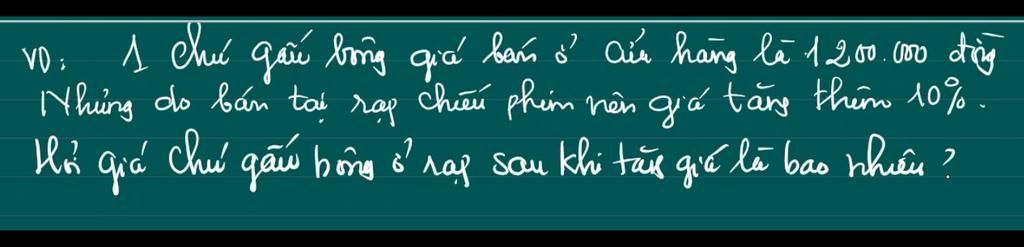 VD: 1 chú gấu bông giá bán ở cửa hàng là 1200.000 đồng
Nhưng do bán tại rạp chiếu phim nên giá tăng thêm 10%.
Hỏi giá chú gấu bông ở rạp sau khi tăng giá là bao nhiêu?